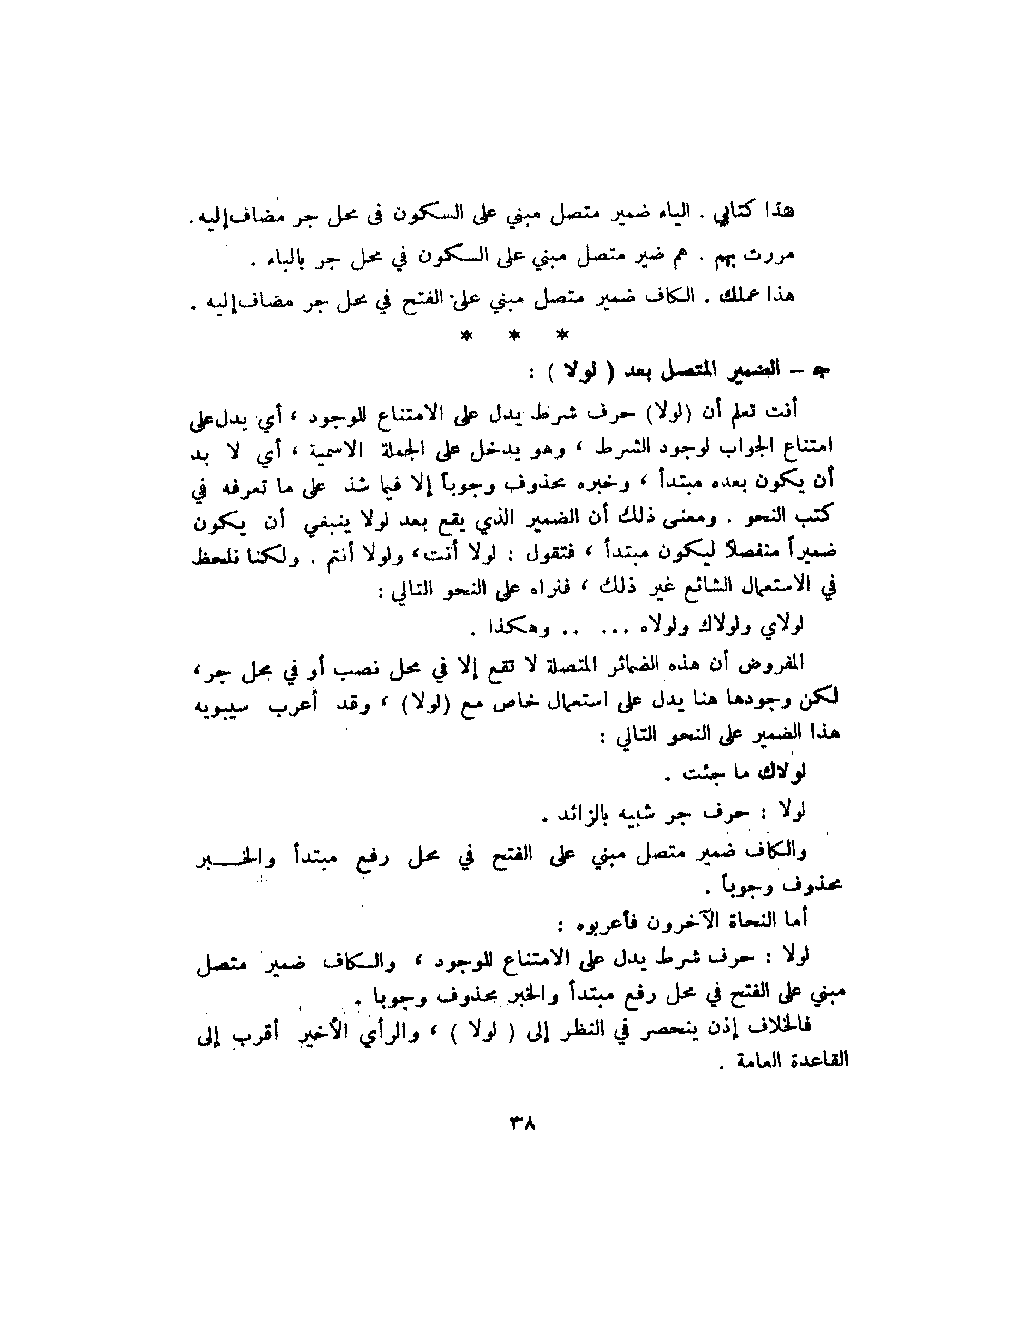 هذا كتابي . الياء ضمير متصل مبني على السكون في محل جر مضاف إليه .
مررت بهم . هم ضير متصل مبني على السكون في محل جر بالباء .
هذا عملك . الكاف ضمير متصل مبني على الفتح في محل جر مضاف إليه .
* * *
جـ – الضمير المتصل بعد ( لولا ) :
أنت تعلم أن (لولا) حرف شرط يدل على الامتناع للوجود ، أي يدل على
امتناع الجواب لوجود الشرط ، وهو يدخل على الجملة الاسمية ، أي لا بد
أن يكون بعده مبتدأ ، وخبره محذوف وجوباً إلا فيما شذ على ما تعرفه في
كتب النحو . ومعنى ذلك أن الضمير الذي يقع بعد لولا ينبغي أن يكون
ضميراً منفصلاً ليكون مبتدأ ، فتقول : لولا أنت ، ولولا أنتم . ولكنا نلحظ
في الاستعمال الشائع غير ذلك ، فنراه على النحو التالي :
لولاي ولولاك ولولاه ... .. وهكذا .
المفروض أن هذه الضمائر المتصلة لا تقع إلا في محل نصب أو في محل جر ،
لكن وجودها هنا يدل على استعمال خاص مع (لولا) ، وقد أعرب سيبويه
هذا الضمير على النحو التالي :
لولاك ما جئت .
لولا : حرف جر شبيه بالزائد .
والكاف ضمير متصل مبني على الفتح في محل رفع مبتدأ والخـــبر
محذوف وجوباً .
أما النحاة الآخرون فأعربوه :
لولا : حرف شرط يدل على الامتناع للوجود ، والكاف ضمير متصل
مبني على الفتح في محل رفع مبتدأ والخبر محذوف وجوبا .
فالخلاف إذن ينحصر في النظر إلى ( لولا ) ، والرأي الأخير أقرب إلى
القاعدة العامة .
٣٨